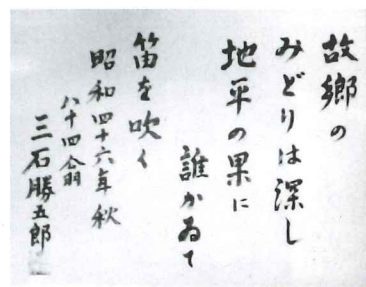 故郷の
みどりは深し
地平の果に
誰かゐて
笛を吹く
昭和四十六年秋
八十四翁
三石勝五郎